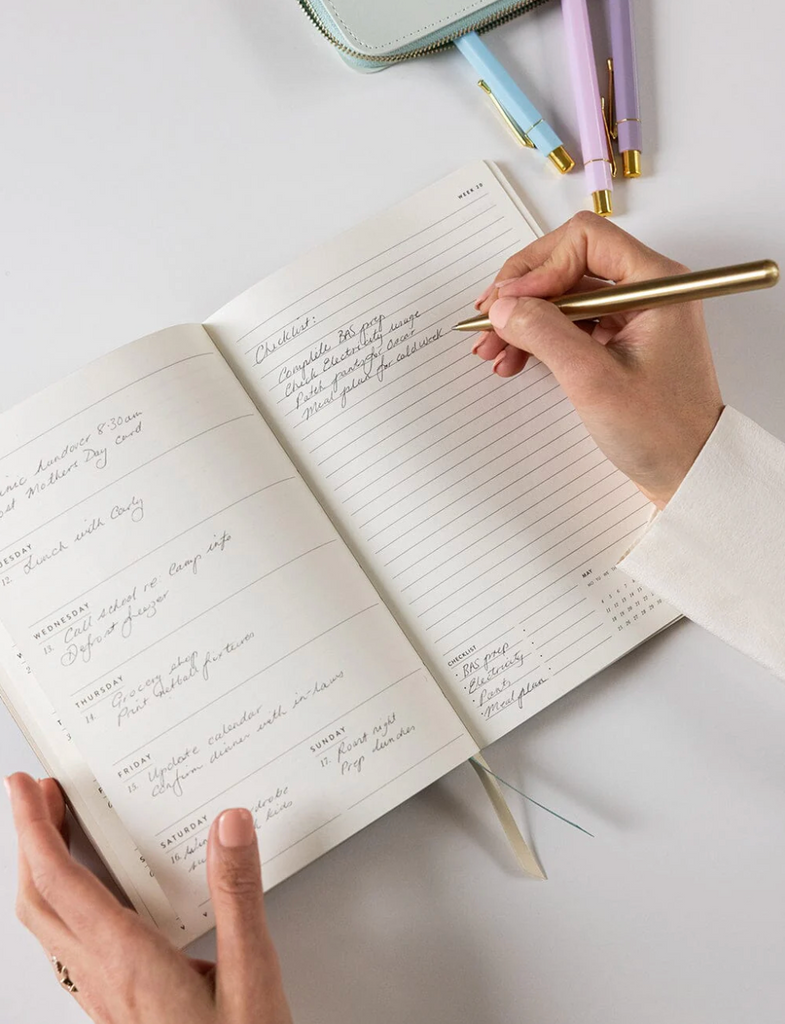 handover 8.30am
Mothers Day card
12. Lunch with Carly
WEDNESDAY
13. Call school re. Camp info
Defrost freezer
THURSDAY
14. Grocery shop
Print netball fixtures
FRIDAY
15. Update calendar
Confirm dinner with in-laws
SATURDAY
16.
kids
SUNDAY
17. Roast night
Prep lunches
Checklist:
Complete BAS prep
Check Electricity usage
Patch pants for Oscar
Meal plan for cold week
CHECKLIST
BAS prep
Electricity
Pants
Meal plan
MAY